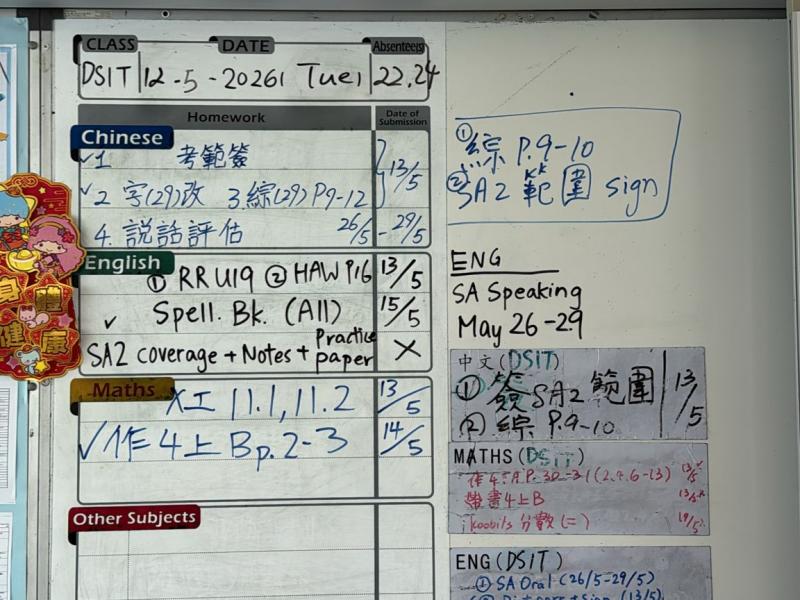 CLASS DATE Absentee(s)
DSIT 12-5-2026 Tue 22.24
Homework Date of Submission
Chinese
✓1 考範簽
✓2 字(29)改 3.綜(29)P9-12 13/5
4. 說話評估 26/5-29/5
English
① RR U19 ② HAW P16 13/5
✓ Spell. Bk. (All) 15/5
SA2 coverage + Notes + Practice paper ×
Maths
工 11.1, 11.2 13/5
✓作4上B p.2-3 14/5
Other Subjects
① 綜 P.9-10
② SA2 範圍 sign
ENG
SA Speaking
May 26-29
中文(DSIT)
① 簽SA2範圍 13/5
② 綜 P.9-10
MATHS(DSIT)
作4 P.30-31(2.4.6-13) 13/5
帶書4上B 13/5
分數(二) 19/5
ENG(DSIT)
① SA Oral (26/5-29/5)
身體健康